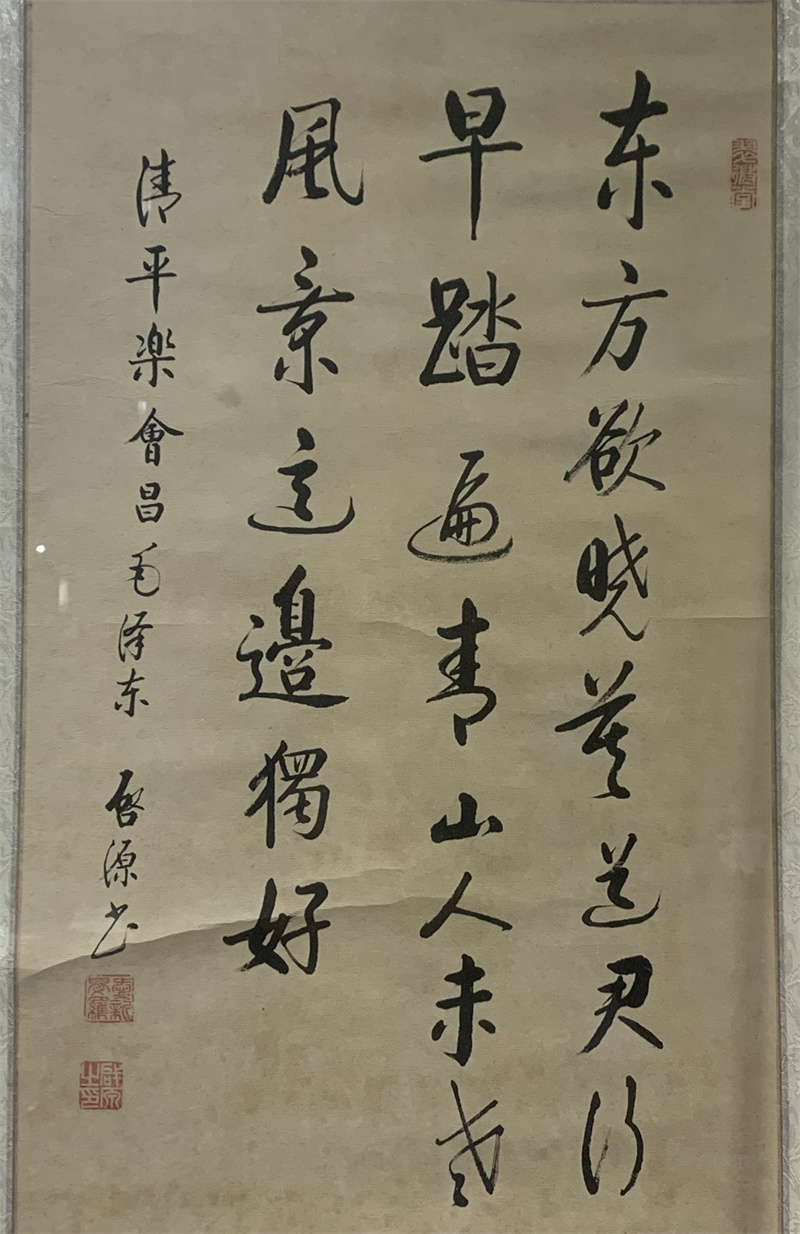 东方欲晓莫道君行
早踏遍青山人未老
風景這邊獨好
清平楽會昌毛泽东 啓源书